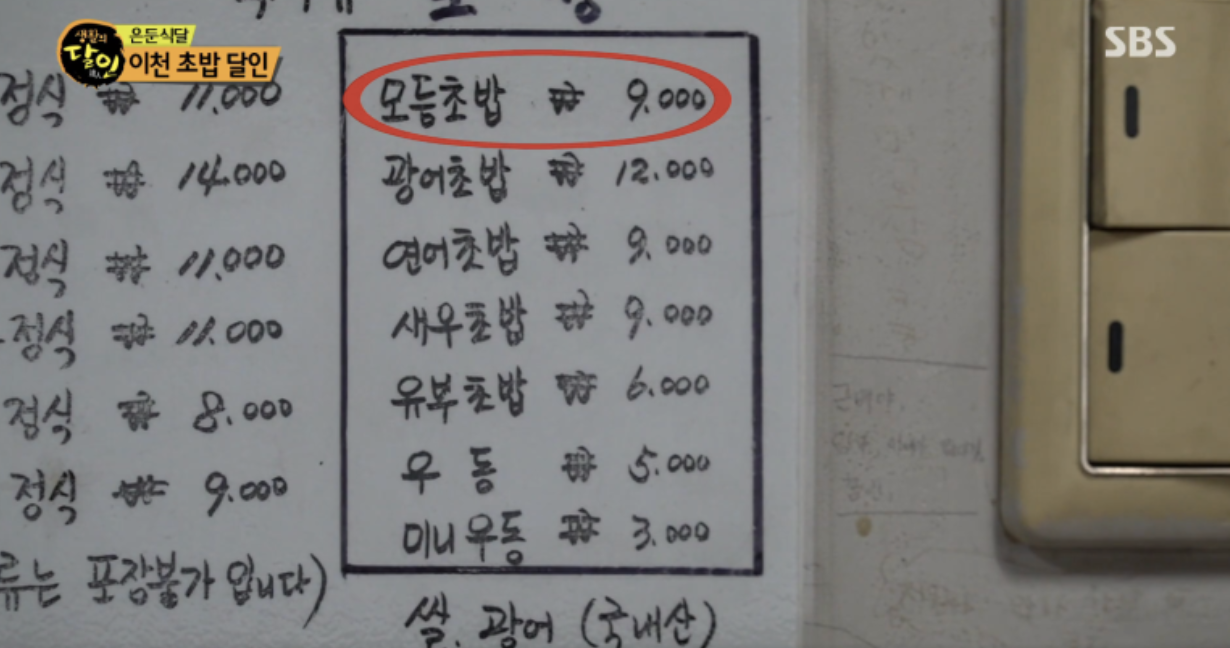 생활의 달인
은둔식달
이천 초밥 달인
SBS
정식 ₩ 11.000
정식 ₩ 14.000
정식 ₩ 11.000
정식 ₩ 11.000
정식 ₩ 8.000
정식 ₩ 9.000
류는 포장불가 입니다)
모듬초밥 ₩ 9.000
광어초밥 ₩ 12.000
연어초밥 ₩ 9.000
새우초밥 ₩ 9.000
유부초밥 ₩ 6.000
우 동 ₩ 5.000
미니우동 ₩ 3.000
쌀. 광어 (국내산)